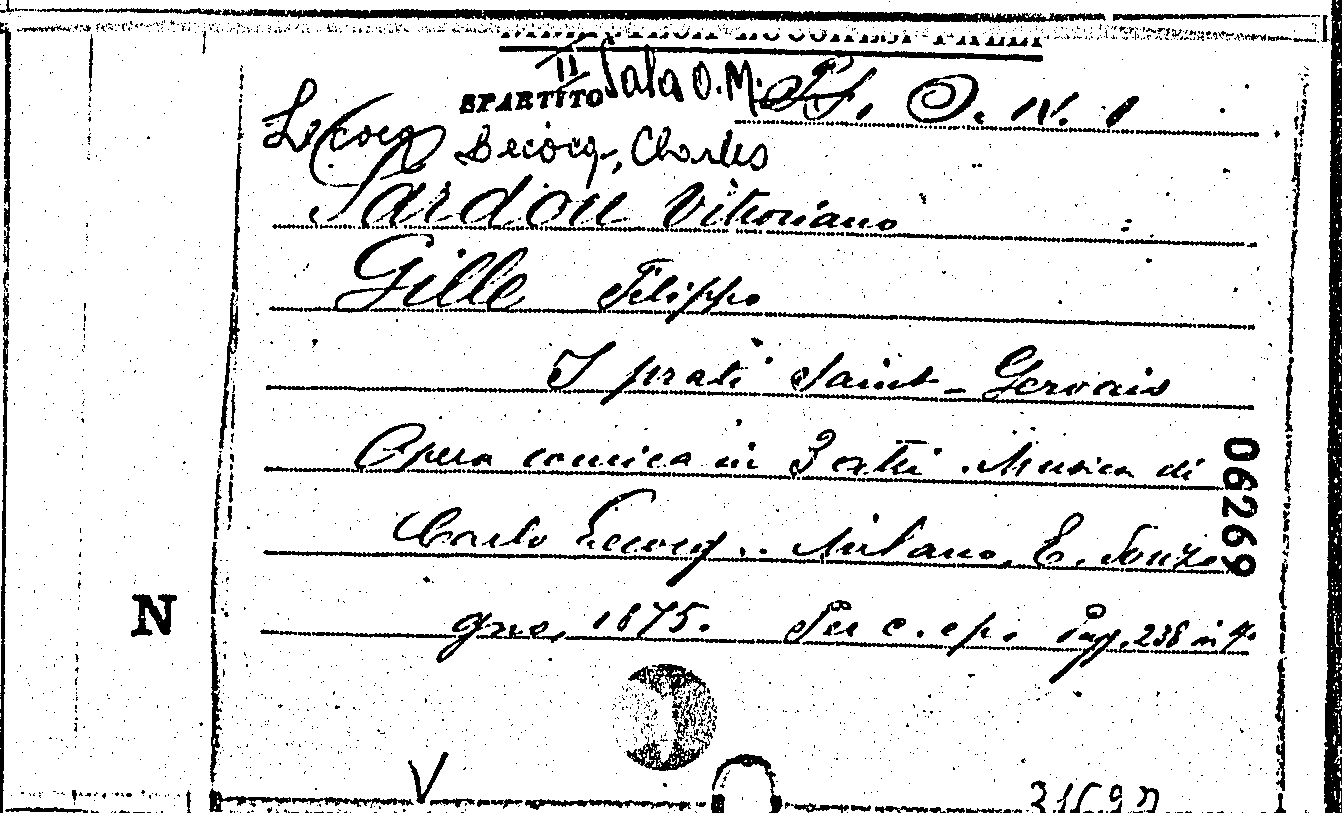 II
SPARTITO Sala O.M. Pf. O. IV. 1
Lecocq Lecocq, Charles
Sardou Vittoriano
Gille Filippo
I prati Saint-Gervais
Opera comica in 3 atti. Musica di
Carlo Lecocq.. Milano, E. Sonzo
gno, 1875. Per c. e p. Pag. 238 in 4°
06269
N
V